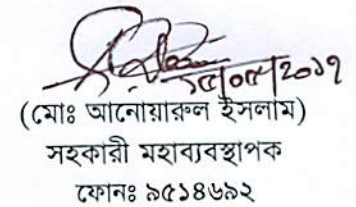 ১৫/০৫/২০১৭
(মোঃ আনোয়ারুল ইসলাম)
সহকারী মহাব্যবস্থাপক
ফোনঃ ৯৫১৪৬৯২